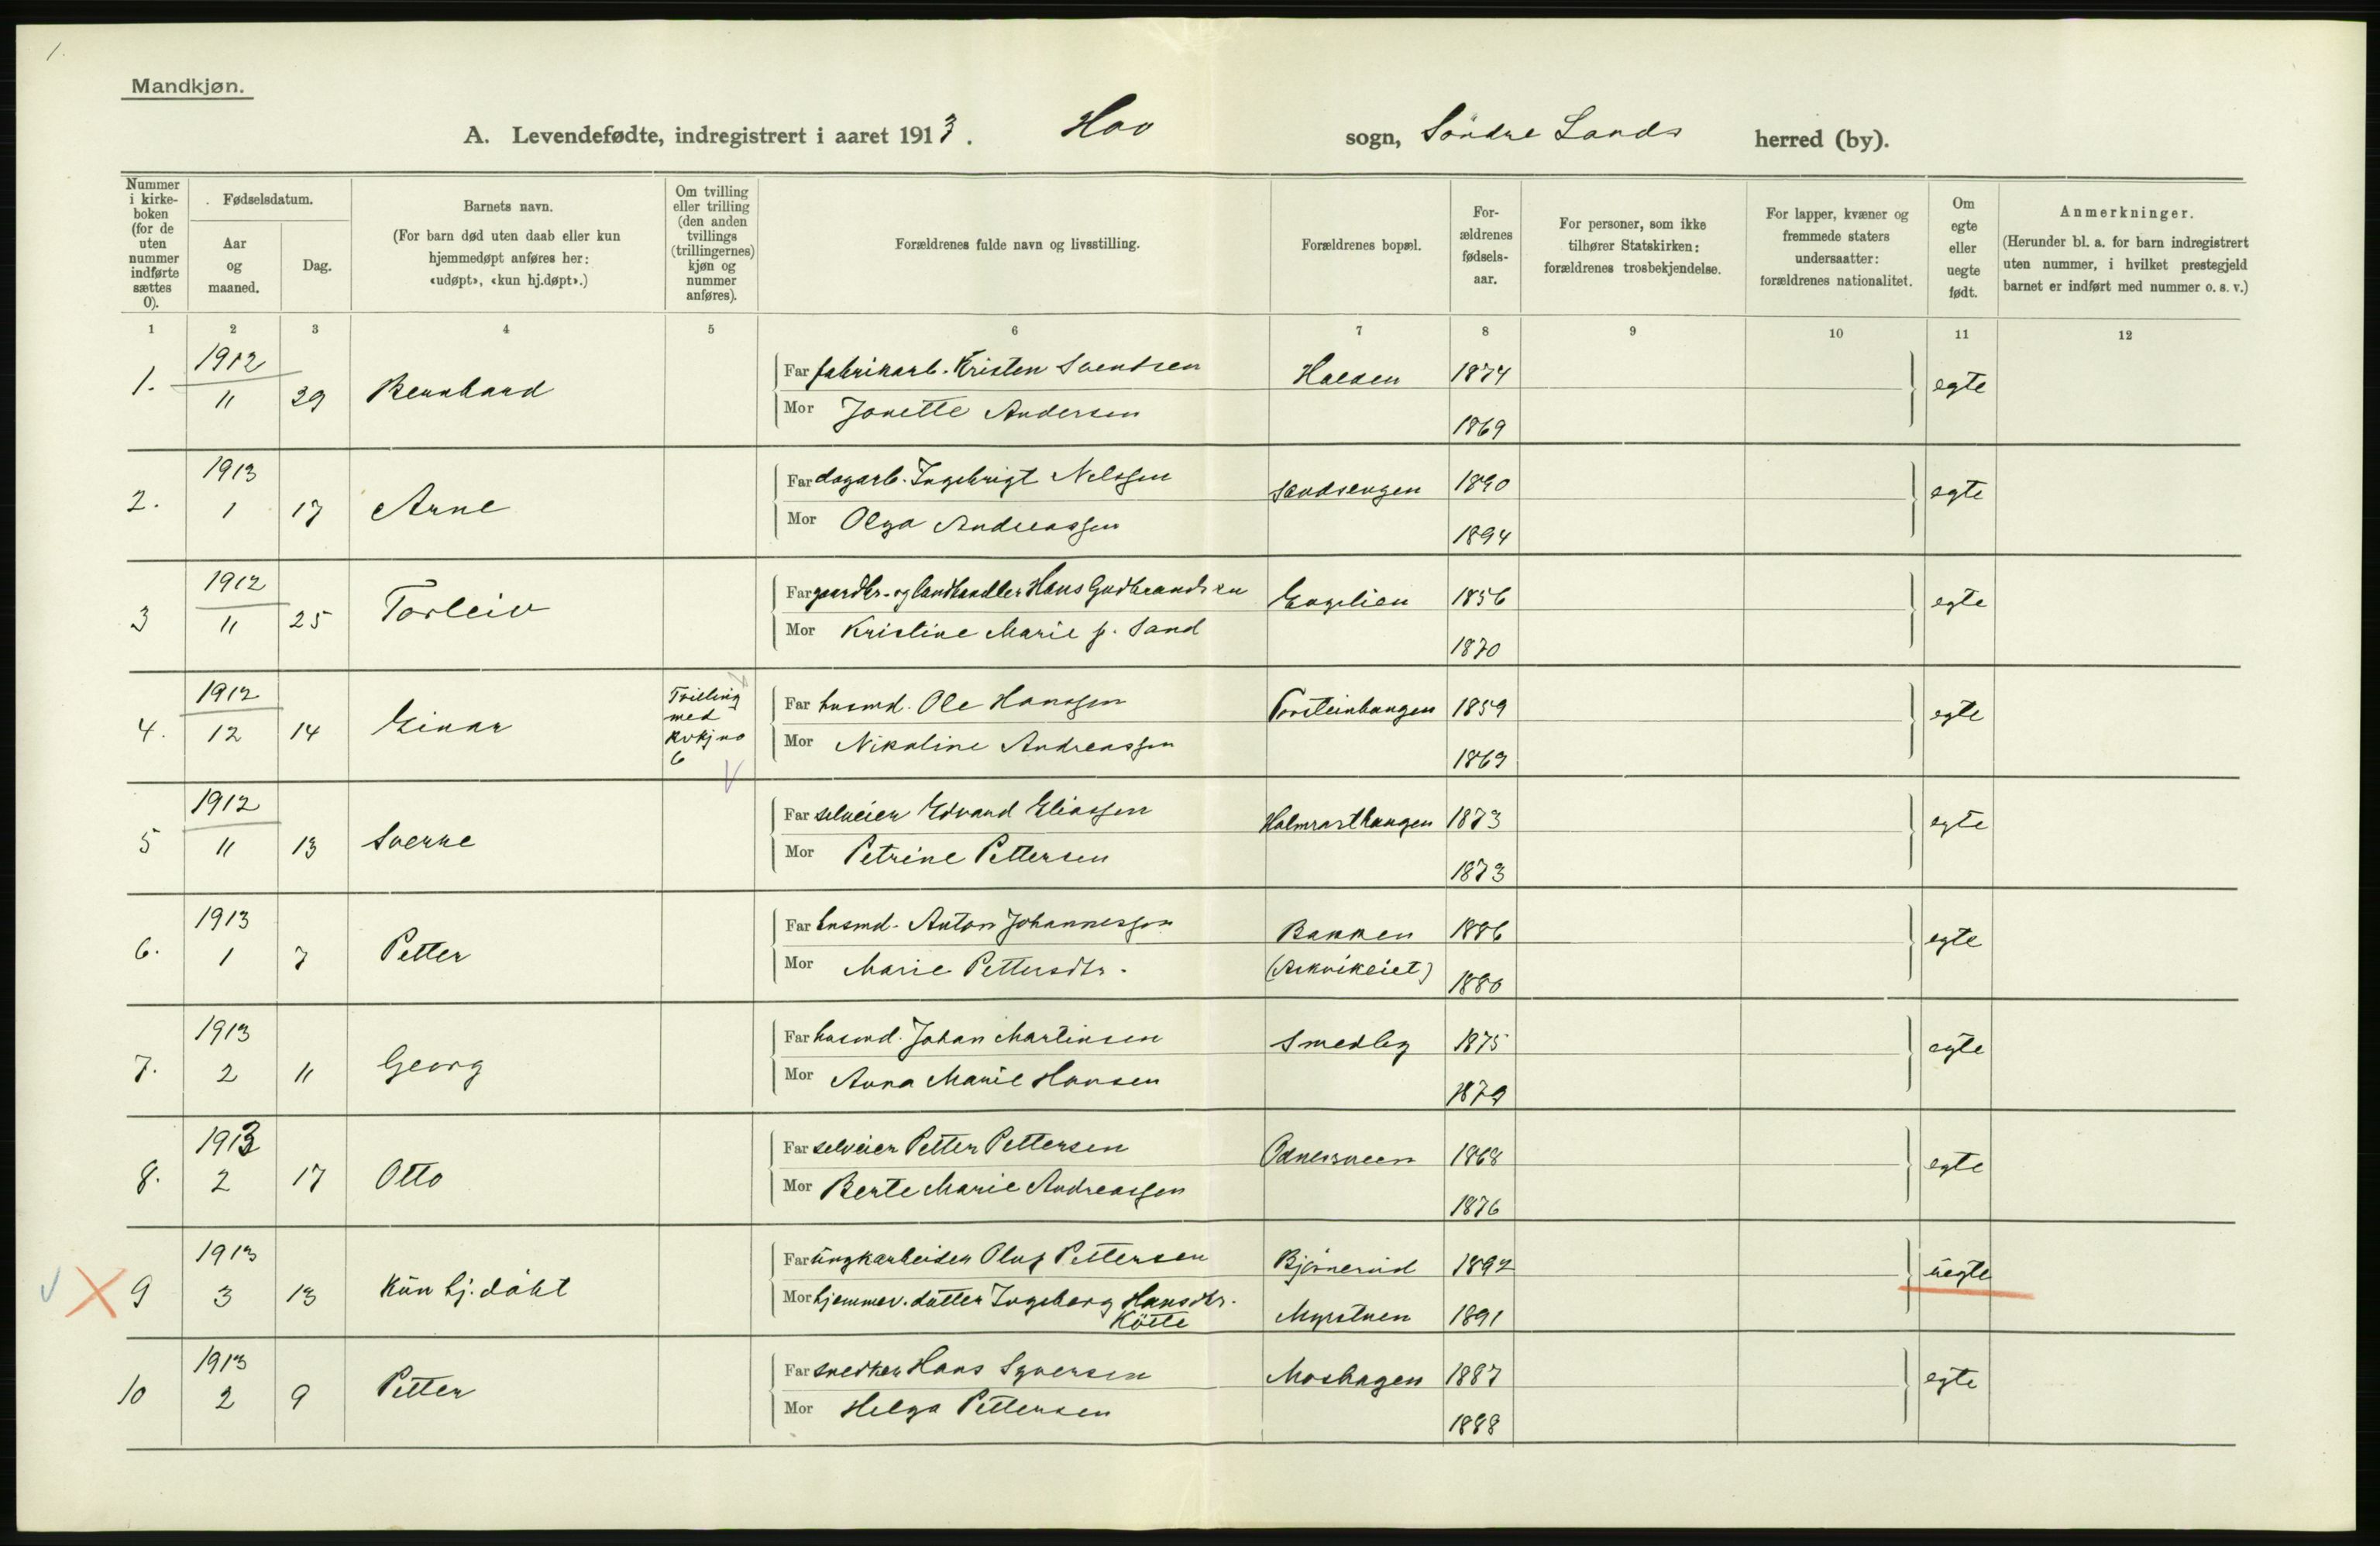 1.
Mandkjøn.
A. Levendefødte, indregistrert i aaret 1913. Hov sogn, Søndre Lands herred (by).
Nummer i kirkeboken (for de uten nummer indførte sættes 0).
Fødselsdatum.
Aar og maaned.
Dag.
Barnets navn.
(For barn død uten daab eller kun hjemmedøpt anføres her: «udøpt», «kun hj.døpt».)
Om tvilling eller trilling (den anden tvillings (trillingernes) kjøn og nummer anføres).
Forældrenes fulde navn og livsstilling.
Forældrenes bopæl.
Forældrenes fødselsaar.
For personer, som ikke tilhører Statskirken: forældrenes trosbekjendelse.
For lapper, kvæner og fremmede staters undersaatter: forældrenes nationalitet.
Om egte eller uegte født.
Anmerkninger.
(Herunder bl. a. for barn indregistrert uten nummer, i hvilket prestegjeld barnet er indført med nummer o. s. v.)
1 2 3 4 5 6 7 8 9 10 11 12
1. 1912 11 29 Bernhard Far fabrikarb. Kristen Svendsen Halden 1874 egte
Mor Jonette Andersen 1869
2. 1913 1 17 Arne Far dagarb. Ingebrigt Nelssen Sandsengen 1890 egte
Mor Olga Andreassen 1894
3 1912 11 25 Torleiv Far gaardbr. og landhandler Hans Gudbrandsen Englien 1856 egte
Mor Kristine Marie f. Sand 1870
4. 1912 12 14 Einar Tvilling med kvkj no 6 Far husmd. Ole Hanssen Torsteinhaugen 1859 egte
Mor Nikoline Andreassen 1869
5 1912 11 13 Sverre Far selveier Edvard Eliassen Holmrasthaugen 1873 egte
Mor Petrine Pettersen 1873
6. 1913 1 7 Petter Far husmd. Anton Johannessen Bakken 1886 egte
Mor Marie Pettersdtr. (Askvikeiet) 1880
7. 1913 2 11 Georg Far husmd. Johan Martinsen Smedby 1875 egte
Mor Anna Marie Hansen 1879
8. 1913 2 17 Otto Far selveier Petter Pettersen Odnesveen 1868 egte
Mor Berte Marie Andreassen 1876
9 1913 3 13 Kun hj. døbt Far ungkarbeider Oluf Pettersen Bjørnerud 1892 uegte
Mor hjemmev. datter Ingeborg Hansdtr. Køtte Myrstuen 1891
10 1913 2 9 Petter Far snedker Hans Syversen Moshagen 1887 egte
Mor Helga Pettersen 1888